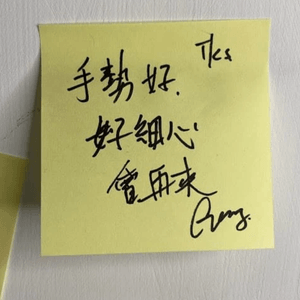 手勢好. Tks
好細心
會再來